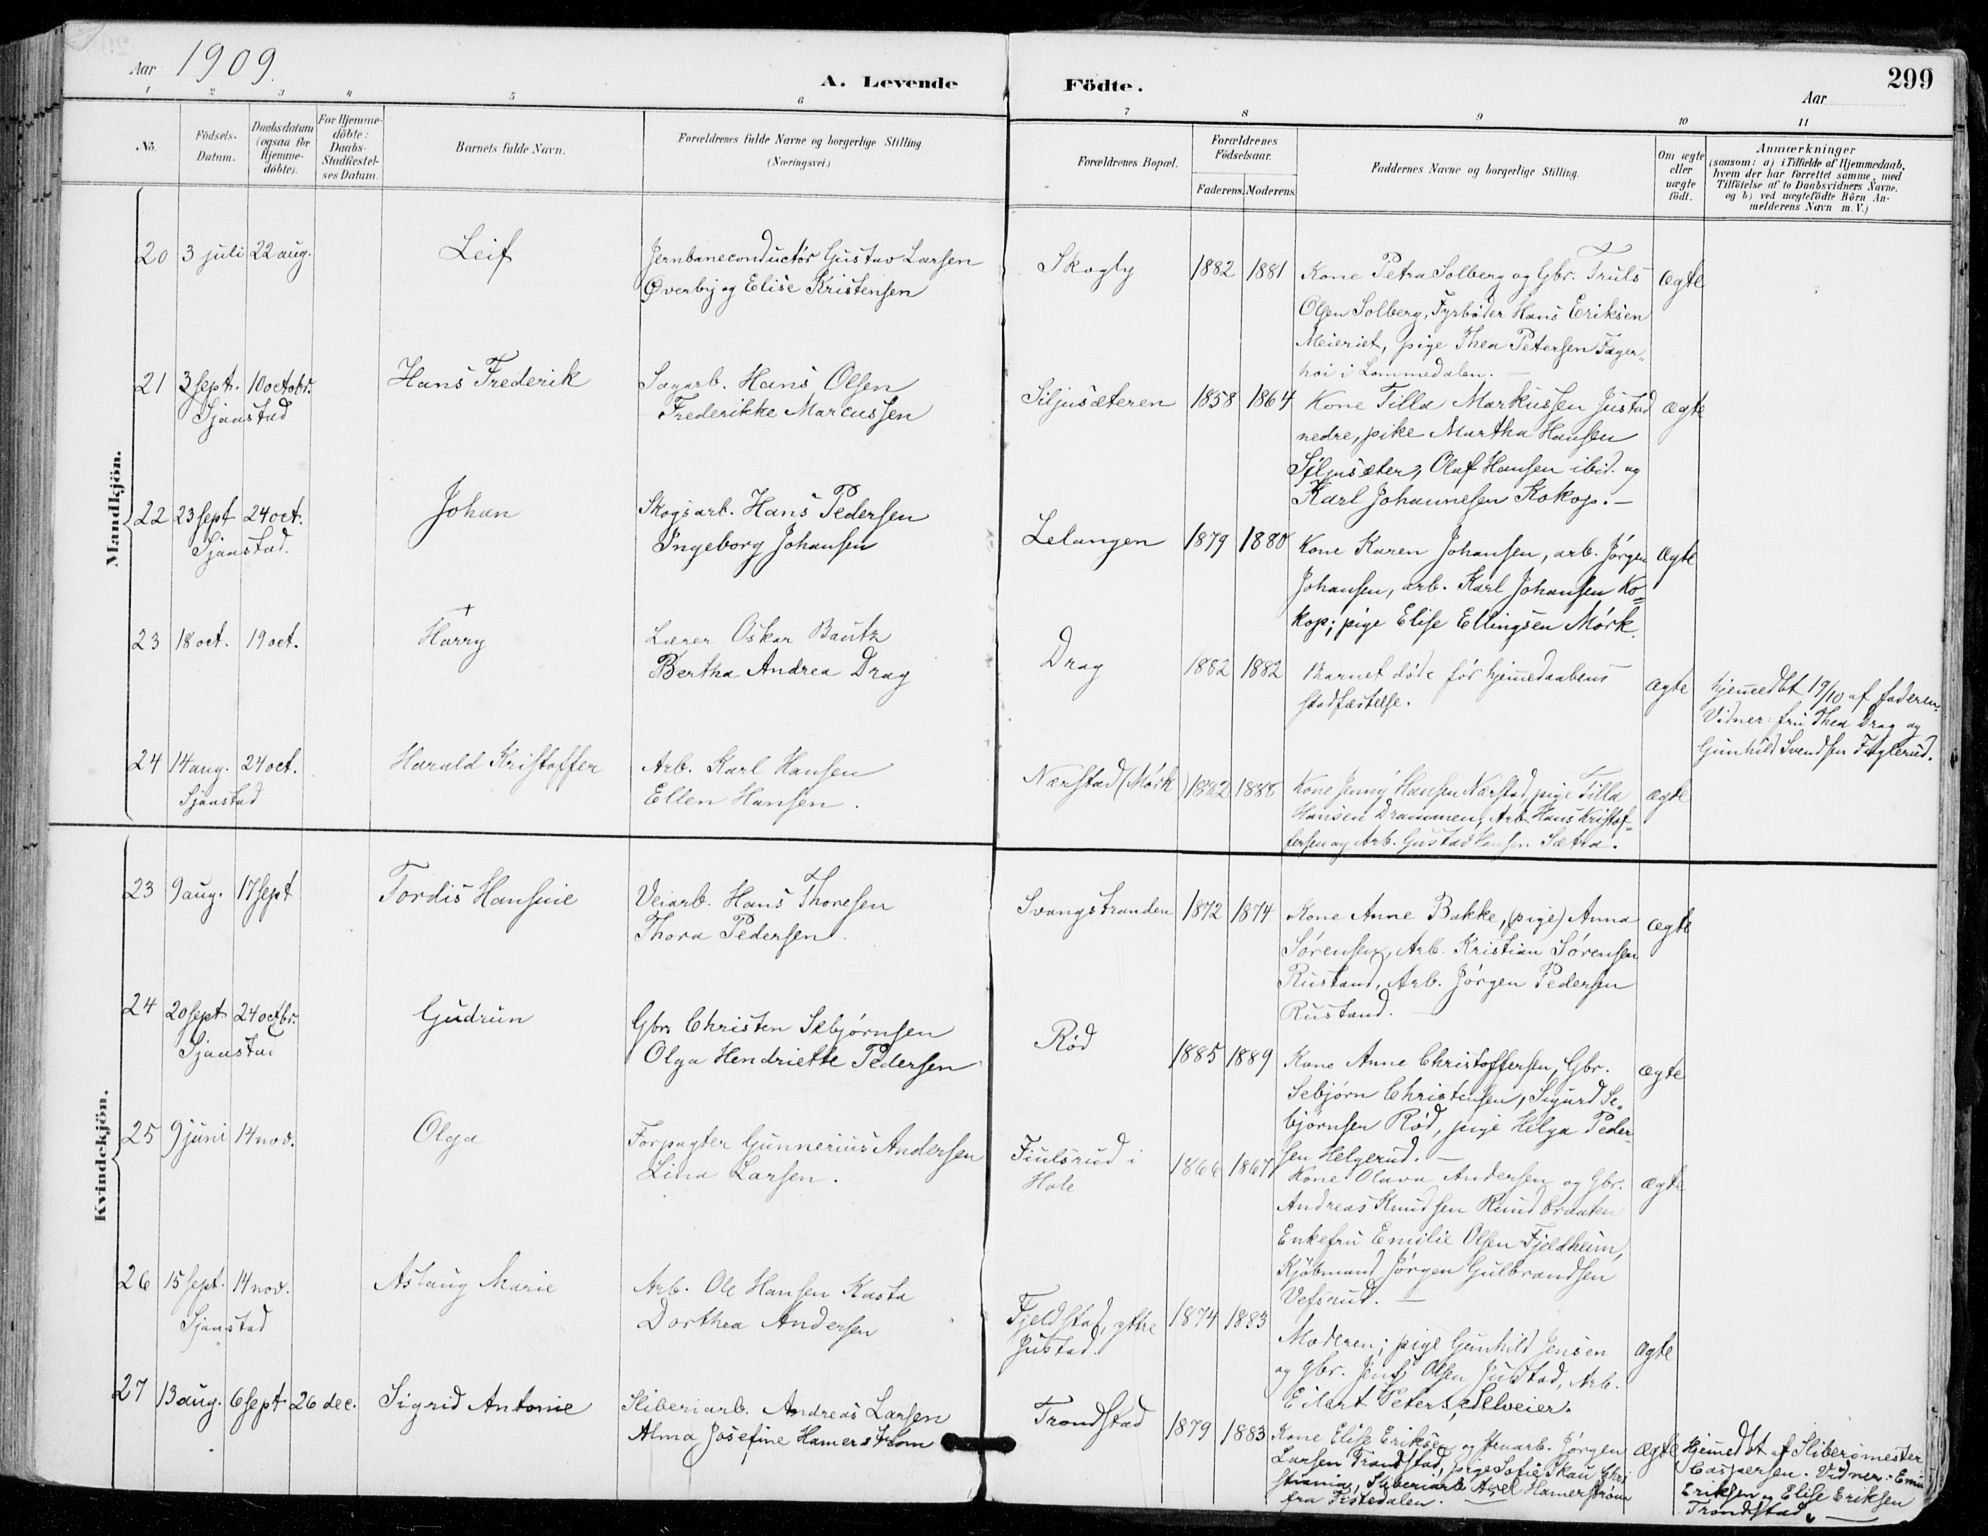 Aar 1909.
A. Levende Födte.
Aar
299
1 2 3 4 5 6 7 8 9 10 11
No.
Födsels-Datum.
Daabsdatum (ogsaa for Hjemme-döbte).
For Hjemme-döbte: Daabs-Stadfæstel-ses Datum.
Barnets fulde Navn.
Forældrenes fulde Navne og borgerlige Stilling (Næringsvei.)
Forældrenes Bopæl.
Forældrenes Födselsaar.
Faderens. Moderens.
Faddernes Navne og borgerlige Stilling.
Om ægte eller uægte födt.
Anmærkninger
(saasom: a) i Tilfælde af Hjemmedaab,
hvem der har forrettet samme, med
Tilföielse af to Daabsvidners Navne,
og b) ved uægtefödte Börn An-
melderens Navn m. V.)
Mandkjön.
20 3 juli 22 aug. Leif Jernbaneconductør Gustav Larsen Skogly 1882 1881 Kone Petra Solberg og Gbr. Truls ægte
Øverby og Elise Kristensen
Olsen Solberg, Fyrbøder Hans Eriksen
Meieriet, pige Thea Petersen Fager-
høi i Lommedalen. —
21 3 sept. 10 octobr. Hans Frederik Sagarb. Hans Olsen Siljusæteren 1858 1864 Kone Tilla Markussen Justad ægte
Sjaastad
Frederikke Marcussen
nedre, pike Martha Hansen
Siljusæter, Olaf Hansen ibid. og
Karl Johannesen Kokop. —
22 23 sept 24 oct. Johan Skogsarb. Hans Pedersen Lelangen 1879 1880 Kone Karen Johansen, arb. Jørgen ægte
Sjaastad.
Ingeborg Johansen
Johansen, arb. Karl Johansen Ko-
kop; pige Elise Ellingsen Mörk.
23 18 oct. 19 oct. + Harry Lærer Oskar Bautz Drag 1882 1882 Barnet döde för hjemedaabens ægte hjemedbt 19/10 af faderen.
Bertha Andrea Drag
stadfæstelse.
Vidner: fru Thea Drag og
Gunhild Svendsen Fuglerud.
24 14 aug. 24 oct. Harald Kristoffer Arb. Karl Hansen Nærstad (Mörk) 1882 1888 Kone Jenny Hansen Nærstad, pige Tilla ægte
Sjaastad
Ellen Hansen.
Hansen Drammen, Arb. Hans Kristof-
fersen og Arb. Gustav Hansen Sætra.
Kvindekjön.
23 9 aug. 17 sept Tordis Hansine Veiarb. Hans Thoresen Svangstranden 1872 1874 Kone Anne Bakke, (pige) Anna ægte
Thora Pedersen.
Sørensen, Arb. Kristian Sørensen
Rustand, Arb. Jørgen Pedersen
Rustand. —
24 20 sept 24 octbr. Gudrun Gbr. Christen Sebjørnsen Rød 1885 1889 Kone Anne Christoffersen, Gbr. ægte
Sjaastad
Olga Hendriette Pedersen
Sebjørn Christensen, Sigurd Se-
bjørnsen Rød, pige Helga Peder-
sen Helgerud. —
25 9 juni 14 nov. Olga Forpagter Gunnerius Andersen Fiulsrud i 1866 1867 Kone Olava Andersen og Gbr. ægte
Lina Larsen.
Hole
Andreas Knudsen Rundbraaten
Enkefru Emilie Olsen Fjeldheim,
Kjöbmand Jørgen Gulbrandsen
Vefsrud. —
26 15 sept. 14 nov. Aslaug Marie Arb. Ole Hansen Kasta Fjeldstad, ytre 1874 1883
Sjaastad
Dorthea Andersen
Justad.
Moderen; pige Gunhild Jensen ægte
og Gbr. Jens Olsen Justad, Arb.
Eilart Peters, Selveier.
27 13 aug. 6 sept 26 dec. Sigrid Antonie Sliberiarb. Andreas Larsen Trondstad 1879 1883 Kone Elise Eriksen og Jrnarb. Jørgen ægte Hjemedbt af Slibermester
Alma Josefine Hamerstrom
Larsen Trondstad, pige Sofie Skau Chri
Caspersen. Vidner: Emil
stiania, Sliberiarb Axel Hamerstrøm
Eriksen og Elise Eriksen
fra Tistedalen. —
Trondstad. —